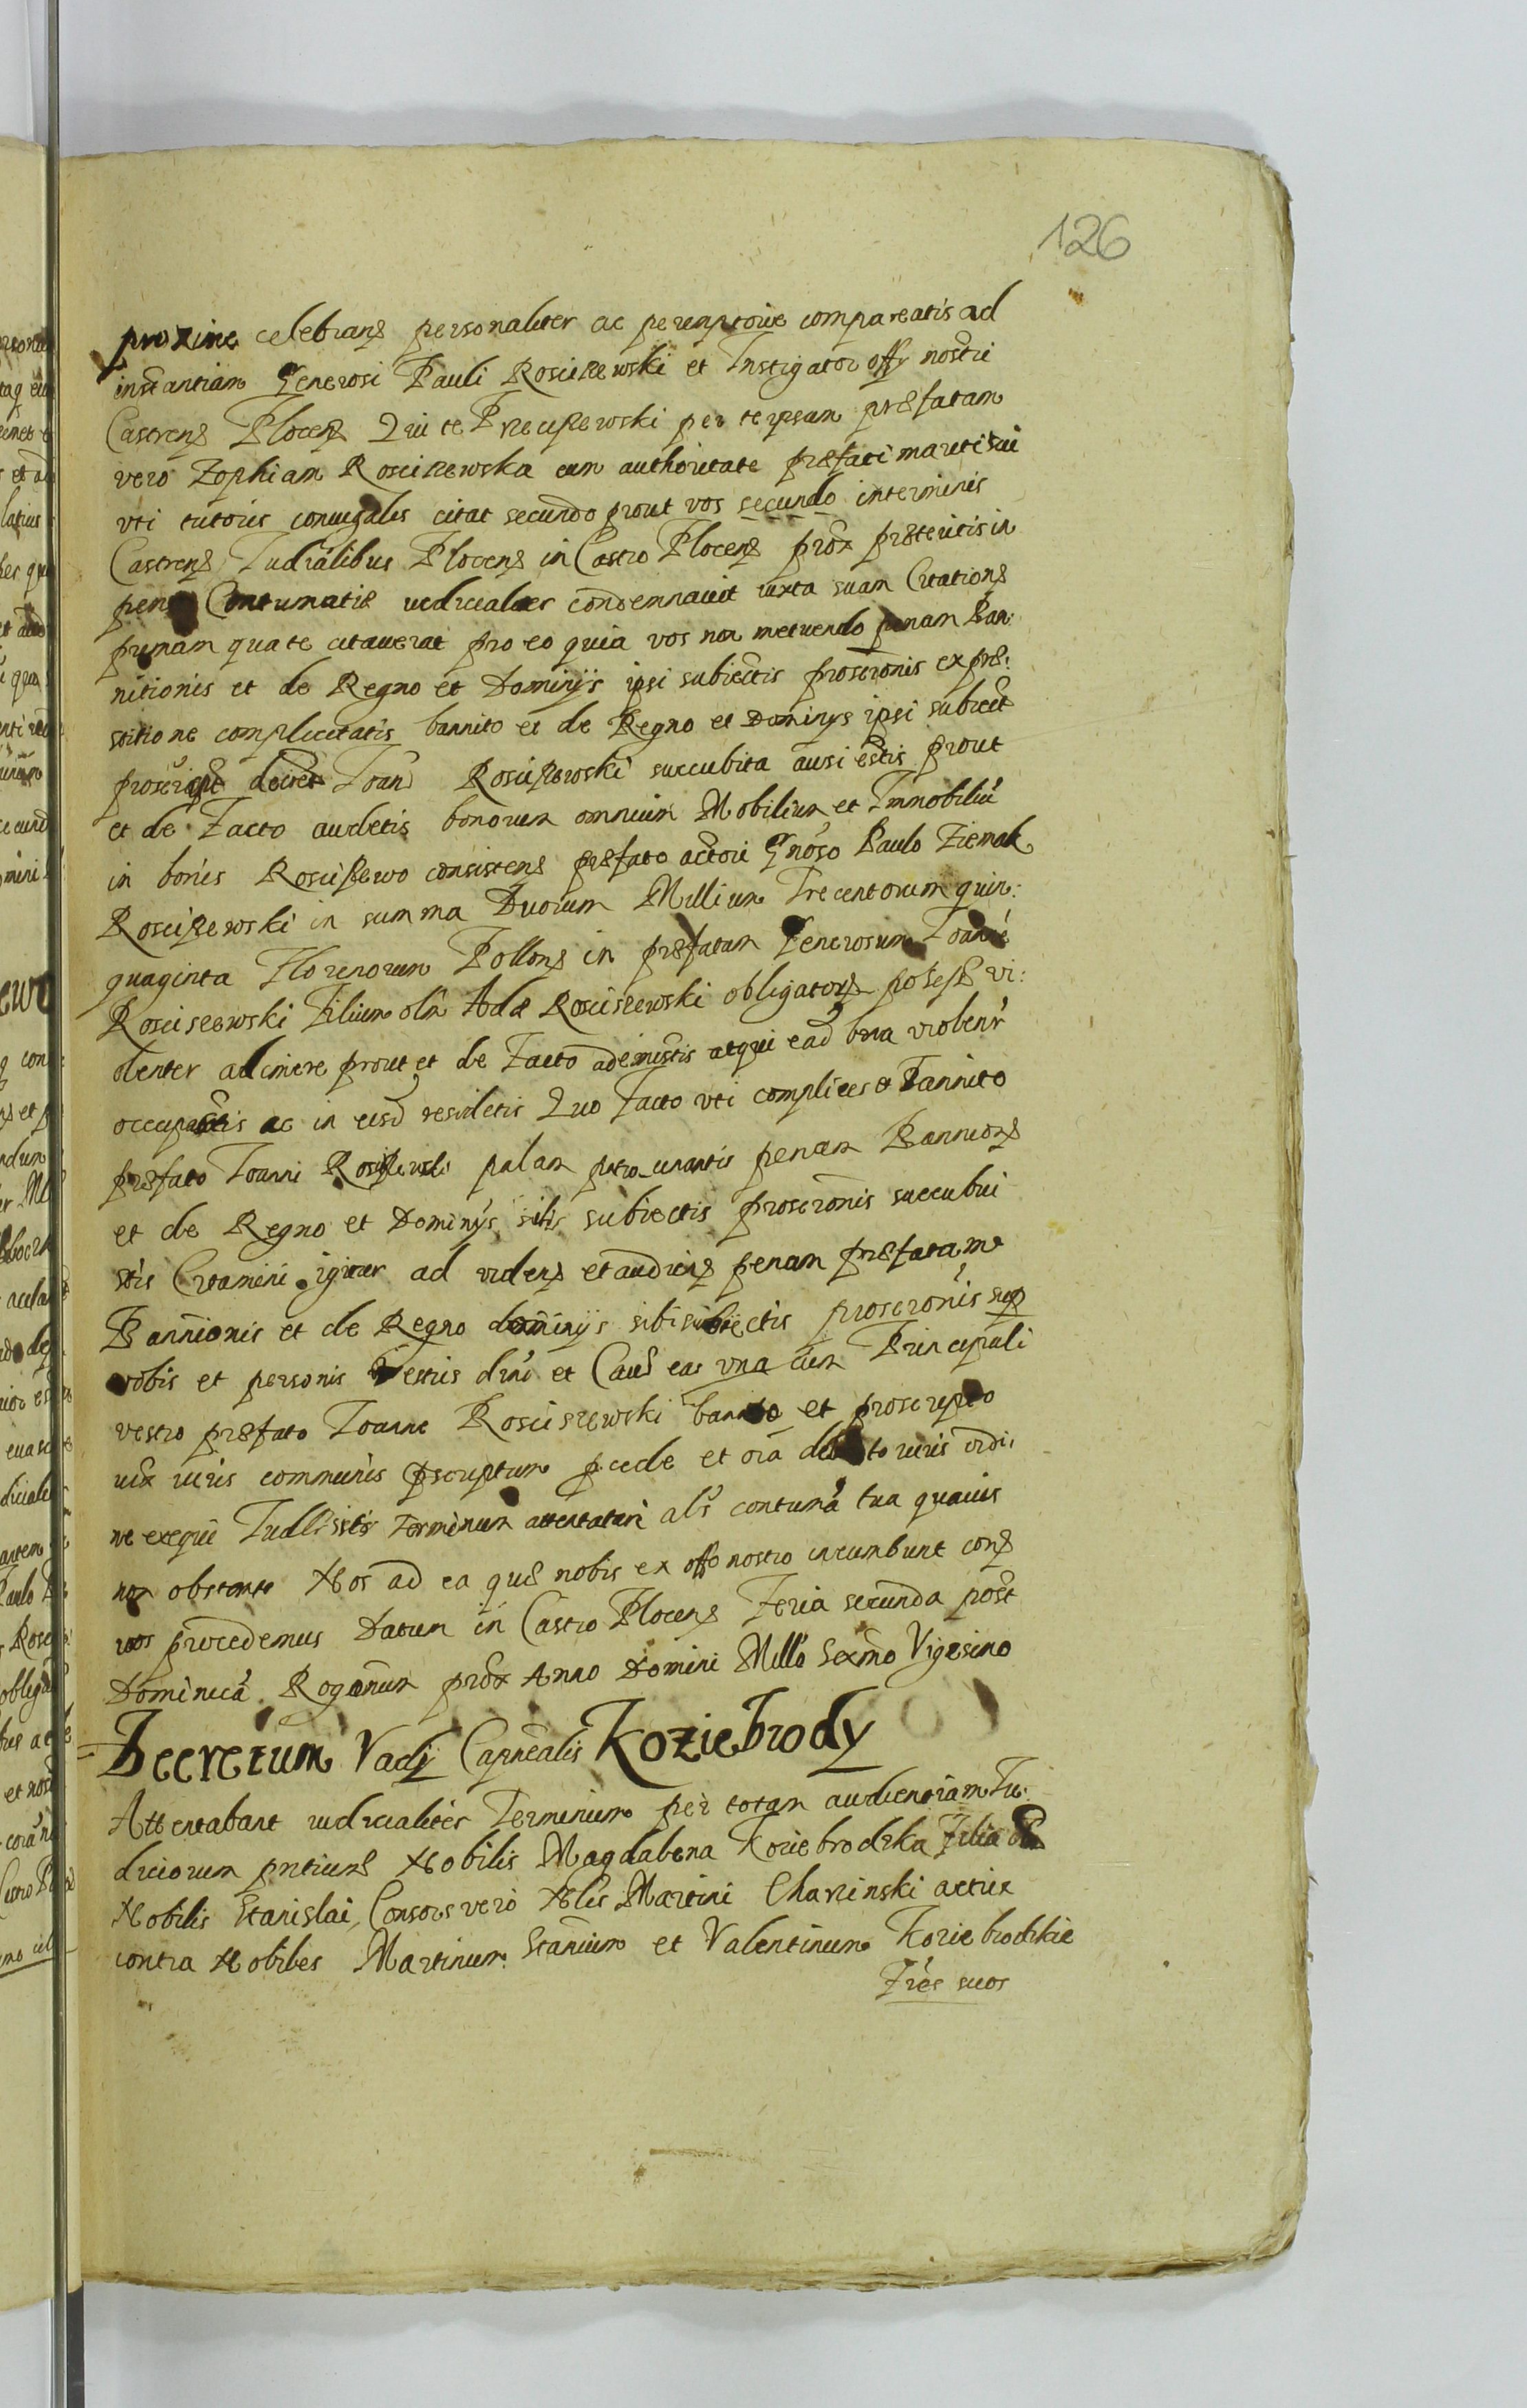 126
proxime celebrans personaliter ac peremptorie compareatis ad
instantiam Generosi Pauli Rosciszewski et Instigator offy nostri
Castrens Plocens Qui te Przeciszewski per te ipsum præfatam
vero Zophiam Rosciszewska cum authoritate præfati mariti sui
vti tutoris coniugalis citat secundo prout vos secundo in terminis
Castrens Iudialibus Plocens in Castro Plocens prox præteritis in
pena Contumatiæ iudicialiter condemnauit iuxta suam Citations
primam qua te citauerat pro eo quia vos non metuendo penam Ban:
nitionis et de Regno et Dominijs ipsi subiectis proscronis ex præ:
stitione complicitatis bannito et de Regno et Dominys ipsi subiect
proscript Ioan Rosciszewski succubita ausi estis prout
et de Facto audetis bonorum omnium Mobilium et Immobiliu
in bonis Rosciszewo consistens præfato actori Gnoso Paulo Ziemak
Rosciszewski in summa Duorum Millium Trecentorum quin:
quaginta Florenorum Pollons in præfatum Generosum Ioanne
Rosciszewski Filium olim Adæ Rosciszewski obligators possess vi:
olenter adimere prout et de Facto ademistis atqui ead bna violentr
occupastis ac in eisd residetis Quo Facto vti complices & Bannito
præfato Ioanni Rosciszewski palam patrocinantis penam Bannions
et de Regno et Dominys sibi subiectis proscronis succubui
stis Citamini igitur ad videns et audiens penam præfatam
Bannionis et de Regno dominijs sibi subiectis proscronis sup
vobis et personis Vestris et eas vna cum Principali
vestro præfato Ioanne Rosciszewski bannito et proscripto
iux iuris communis pscriptum pcede et oia debito iuris ordi:
ne exequi Iudl sitis Terminum attentaturi als contuma tua quauis
non obstante Nos ad ea quæ nobis ex offo nostro incumbunt cons
vos procedemus Datum in Castro Plocens Feria secunda post
Dominica Roganum prox Anno Domini Millo Sexmo Vigesimo
Decretum Vadj Capnealis Koziebrody
Attentabant iudicialiter Terminum per totam audientiam Iu:
diciorum pntium Nobilis Magdalena Koziebrodzka Filia olim
Nobilis Stanislai, Consors vero Nlis Martini Charzinski actrix
contra Nobiles Martinum Stanium et Valentinum Koziebrodzkie
Fres suos